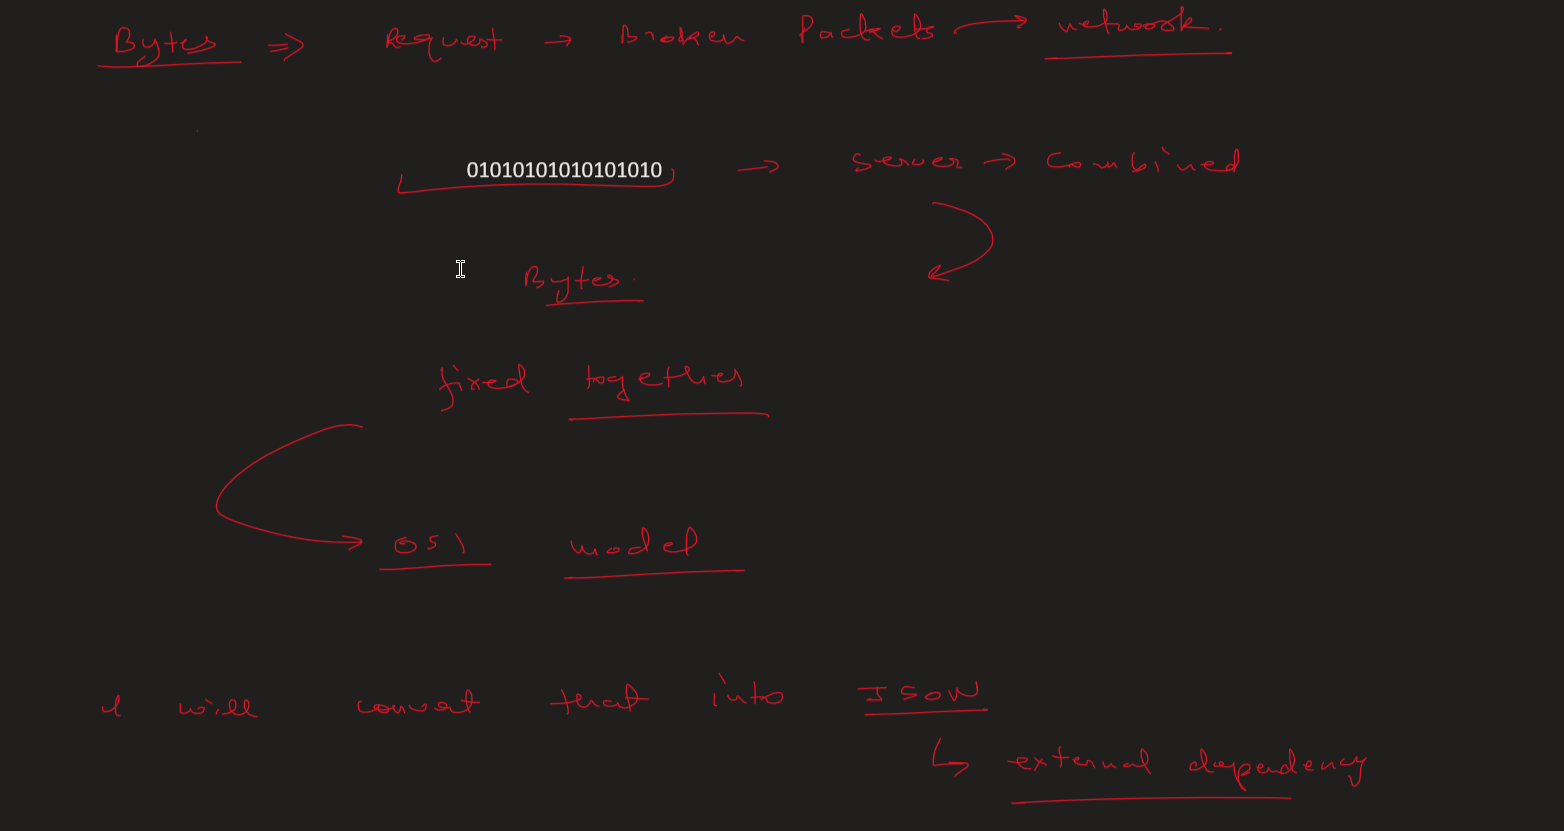 Bytes ⇒ Request → Broken Packets → network.
01010101010101010 → Server → Combined
Bytes.
fixed together
OSI model
I will convert that into JSON
↳ external dependency